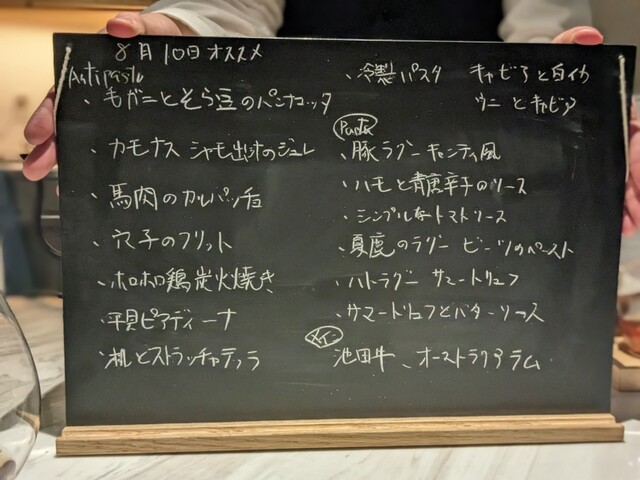 8月10日オススメ
Antipasto
・毛ガニとそら豆のパンナコッタ
・カモナス シャモ出汁のジュレ
・馬肉のカルパッチョ
・穴子のフリット
・ホロホロ鶏炭火焼き
・平貝ピアディーナ
・桃とストラッチャテッラ
・冷製パスタ キャビアと白イカ
ウニとキャビア
Pasta
・豚ラグー キャンティ風
・ハモと青唐辛子のソース
・シンプルなトマトソース
・夏鹿のラグー ビーツのペースト
・ハトラグー サマートリュフ
・サマートリュフとバターソース
メイン
池田牛、オーストラリアラム